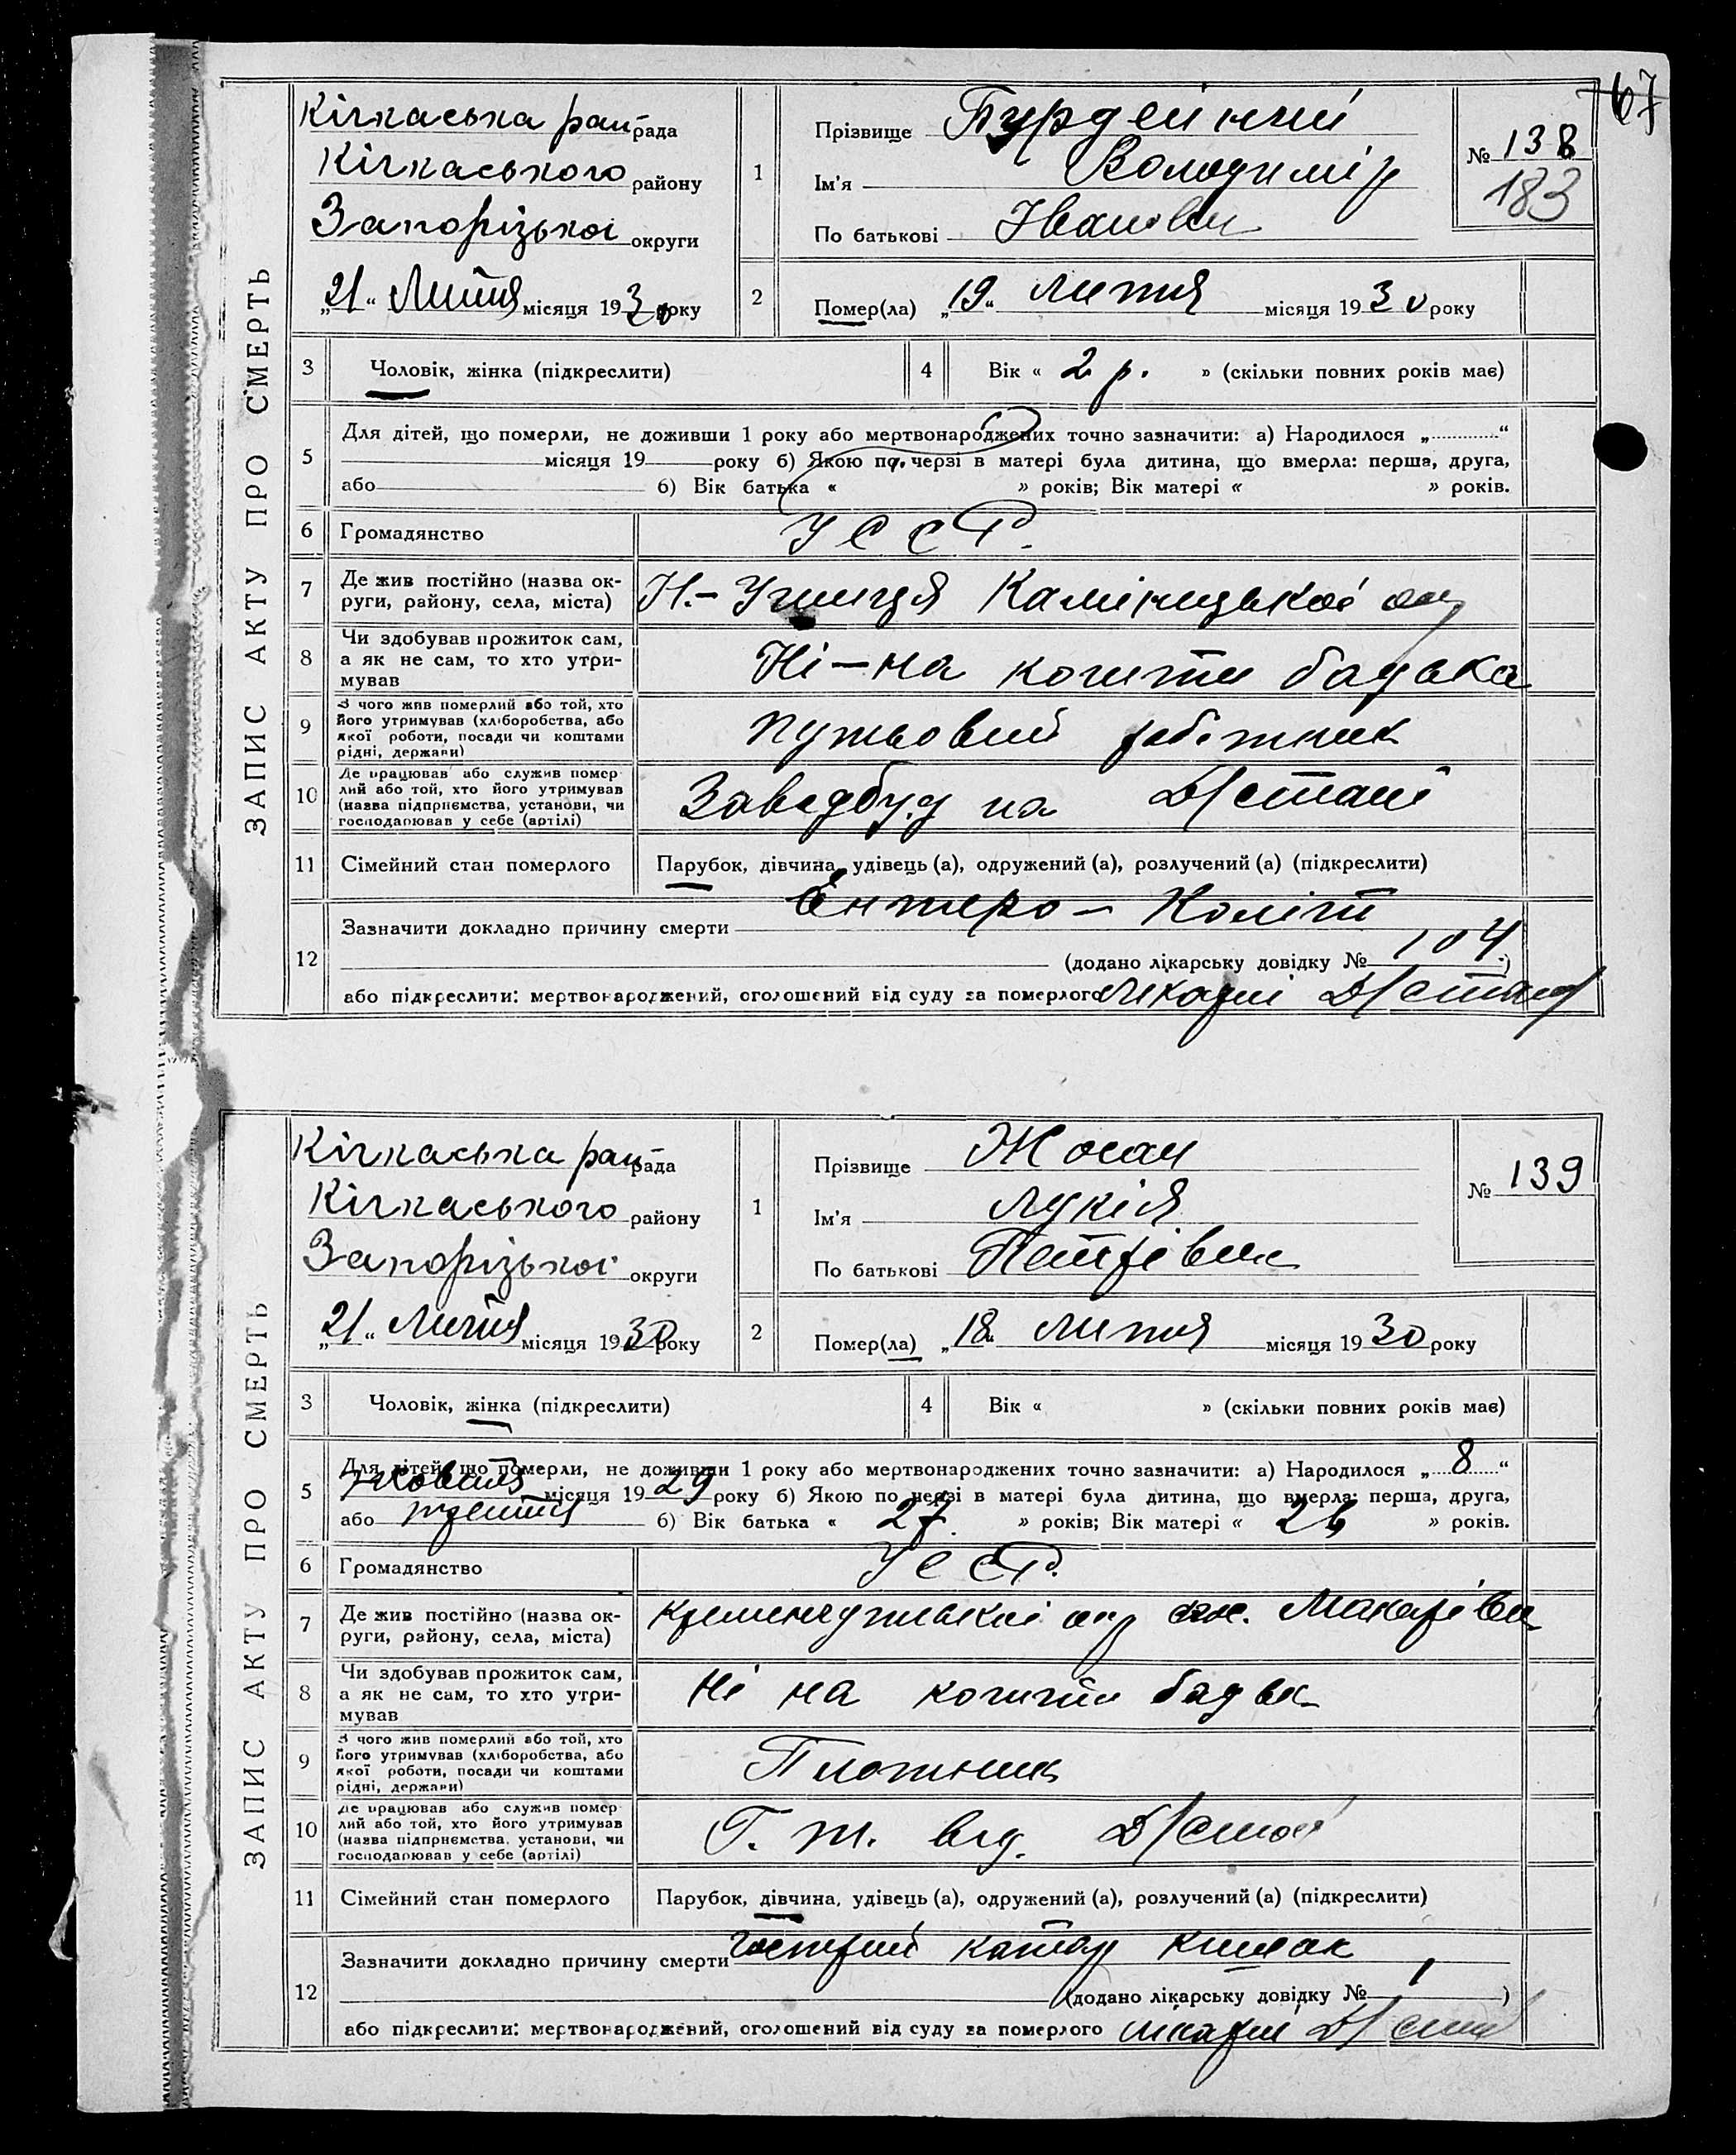 67
ЗАПИС АКТУ ПРО СМЕРТЬ
Кічкаська рай рада
Кічкаського району
Запорізької округи
„21“ Липня місяця 1930 року
1
Прізвище
Ім'я Володимір
По батькові Іванович
№ 138
183
2
Помер(ла) „19“ Липня місяця 1930 року
3 Чоловік, жінка (підкреслити)
4 Вік « 2 р. » (скільки повних років має)
5 Для дітей, що померли, не доживши 1 року або мертвонароджених точно зазначити: а) Народилося „ “
місяця 19 року б) Якою по черзі в матері була дитина, що вмерла: перша, друга,
або б) Вік батька « » років; Вік матері « » років.
6 Громадянство УССР.
7 Де жив постійно (назва ок-
руги, району, села, міста)
Н.-Ушиця Камінецької окр
8 Чи здобував прожиток сам,
а як не сам, то хто утри-
мував
Ні – на кошти батька
9 З чого жив померлий або той, хто
його утримував (хліборобства, або
якої роботи, посади чи коштами
рідні, держави)
робітник
10 Де працював або служив помер
лий або той, хто його утримував
(назва підприємства, установи, чи
господарював у себе (артілі)
на Д/стані
11 Сімейний стан померлого Парубок, дівчина, удівець (а), одружений (а), розлучений (а) (підкреслити)
12 Зазначити докладно причину смерти Ентеро – Коліт
(додано лікарську довідку № 104.)
або підкреслити: мертвонароджений, оголошений від суду за померлого Лікарні
ЗАПИС АКТУ ПРО СМЕРТЬ
Кічкаська рай рада
Кічкаського району
Запорізької округи
„21“ Липня місяця 1930 року
1
Прізвище Жосан
Ім'я Лукія
По батькові Петрівна
№ 139
2
Помер(ла) „18“ Липня місяця 1930 року
3 Чоловік, жінка (підкреслити)
4 Вік « » (скільки повних років має)
5 Для дітей, що померли, не доживши 1 року або мертвонароджених точно зазначити: а) Народилося „8“
Жовтня місяця 1929 року б) Якою по черзі в матері була дитина, що вмерла: перша, друга,
або третя б) Вік батька « 27. » років; Вік матері « 26 » років.
6 Громадянство УССР.
7 Де жив постійно (назва ок-
руги, району, села, міста)
Кременчуцької окр
8 Чи здобував прожиток сам,
а як не сам, то хто утри-
мував
Ні на кошти батьк
9 З чого жив померлий або той, хто
його утримував (хліборобства, або
якої роботи, посади чи коштами
рідні, держави)
Плотник
10 Де працював або служив помер
лий або той, хто його утримував
(назва підприємства, установи, чи
господарював у себе (артілі)
Г. т. від.
11 Сімейний стан померлого Парубок, дівчина, удівець (а), одружений (а), розлучений (а) (підкреслити)
12 Зазначити докладно причину смерти Гострий катар кишок
(додано лікарську довідку № )
або підкреслити: мертвонароджений, оголошений від суду за померлого лікарні